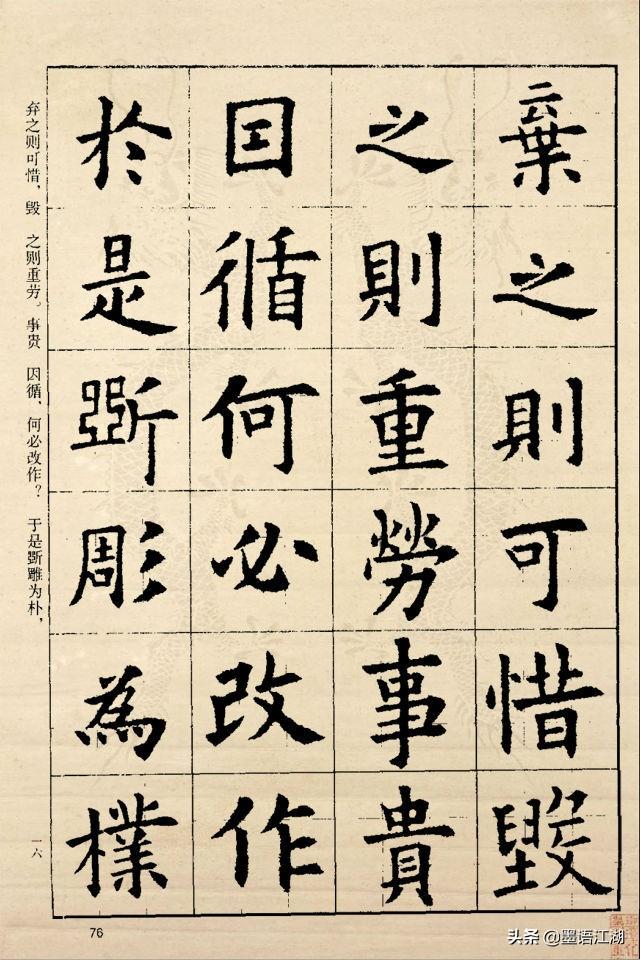 棄之則可惜毀
之則重勞事貴
因循何必改作
於是斲彫為樸
弃之则可惜，毁 之则重劳。事贵 因循，何必改作？ 于是斲雕为朴，
一六
76
头条 @墨语江湖